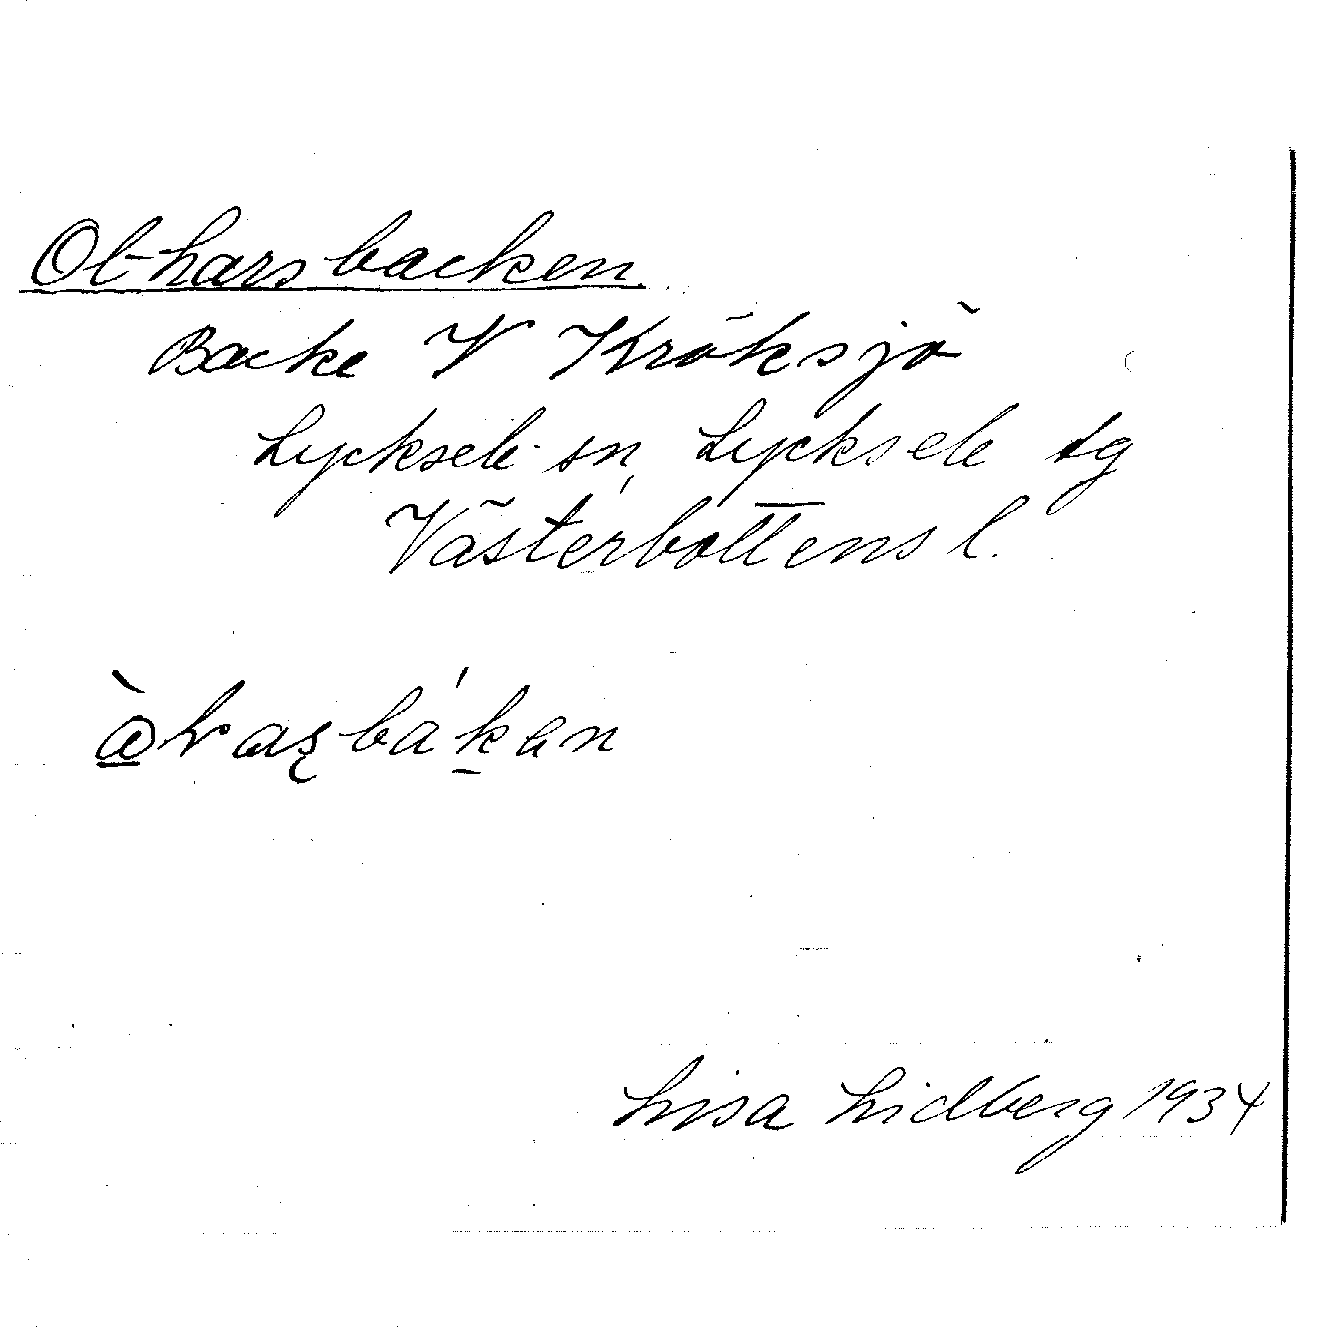 Ol-harsbacken.
Backe V Kroksjö
Lycksele sn, Lycksele tg
Västerbottens l.
Lisa Lidberg 1934